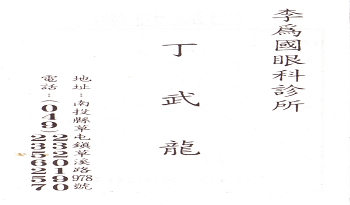 李為國眼科診所
丁武龍
地址：南投縣草屯鎮草溪路978號
電話：(049)2320190
2356257